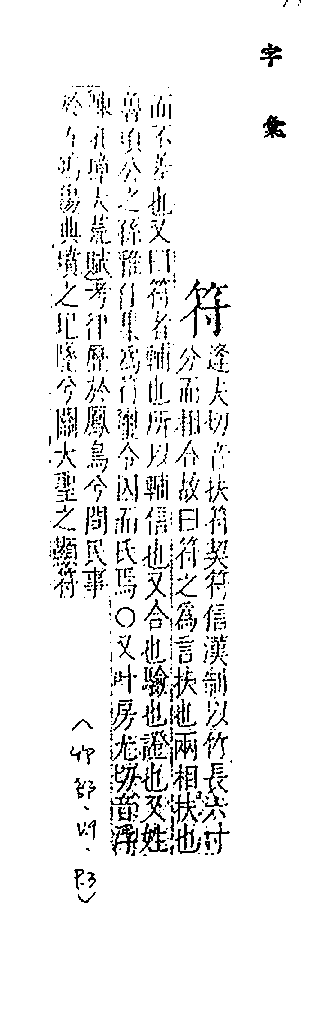 字彙
符
逢夫切音扶符契符信漢制以竹長六寸
分而相合故曰符之為言扶也兩相扶也
而不差也又曰符者輔也所以輔信也又合也驗也證也又姓
魯頃公之孫雅仕秦為符璽令因而氏焉○又叶房尤切音浮
大荒賦考律歷於鳳鳥兮問民事
於 典墳之 墜兮關大聖之顯符
(竹部、V.9、P.3)